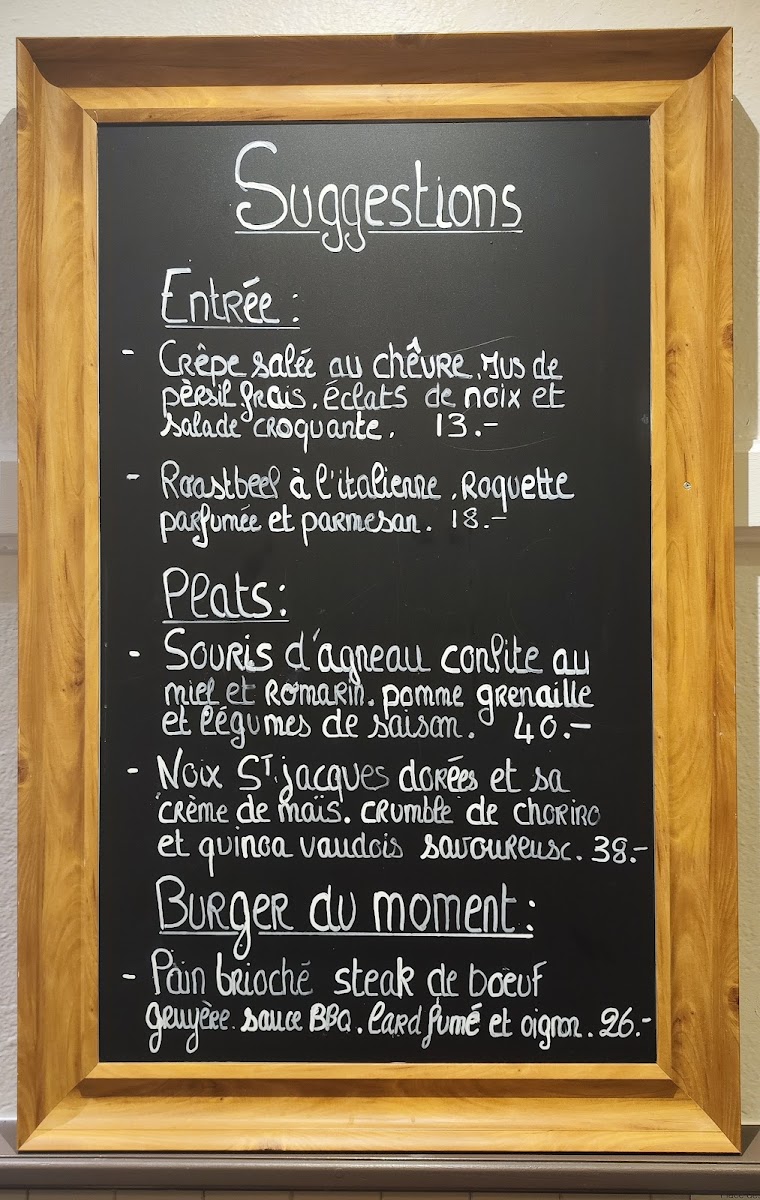 Suggestions
Entrée :
- Crêpe salée au chêvre, Jus de
pèrsil frais, éclats de noix et
salade croquante. 13.-
- Roastbeef à l'italienne, Roquette
parfumée et parmesan. 18.-
Plats :
- Souris d'agneau confite au
miel et Romarin. pomme grenaille
et légumes de saison. 40.-
- Noix St jacques dorées et sa
crème de maïs. crumble de choriro
et quinoa vaudois savoureuse. 38.-
Burger du moment :
- Pain brioché steak de boeuf
gruyère. sauce BBQ. lard fumé et oignon. 26.-